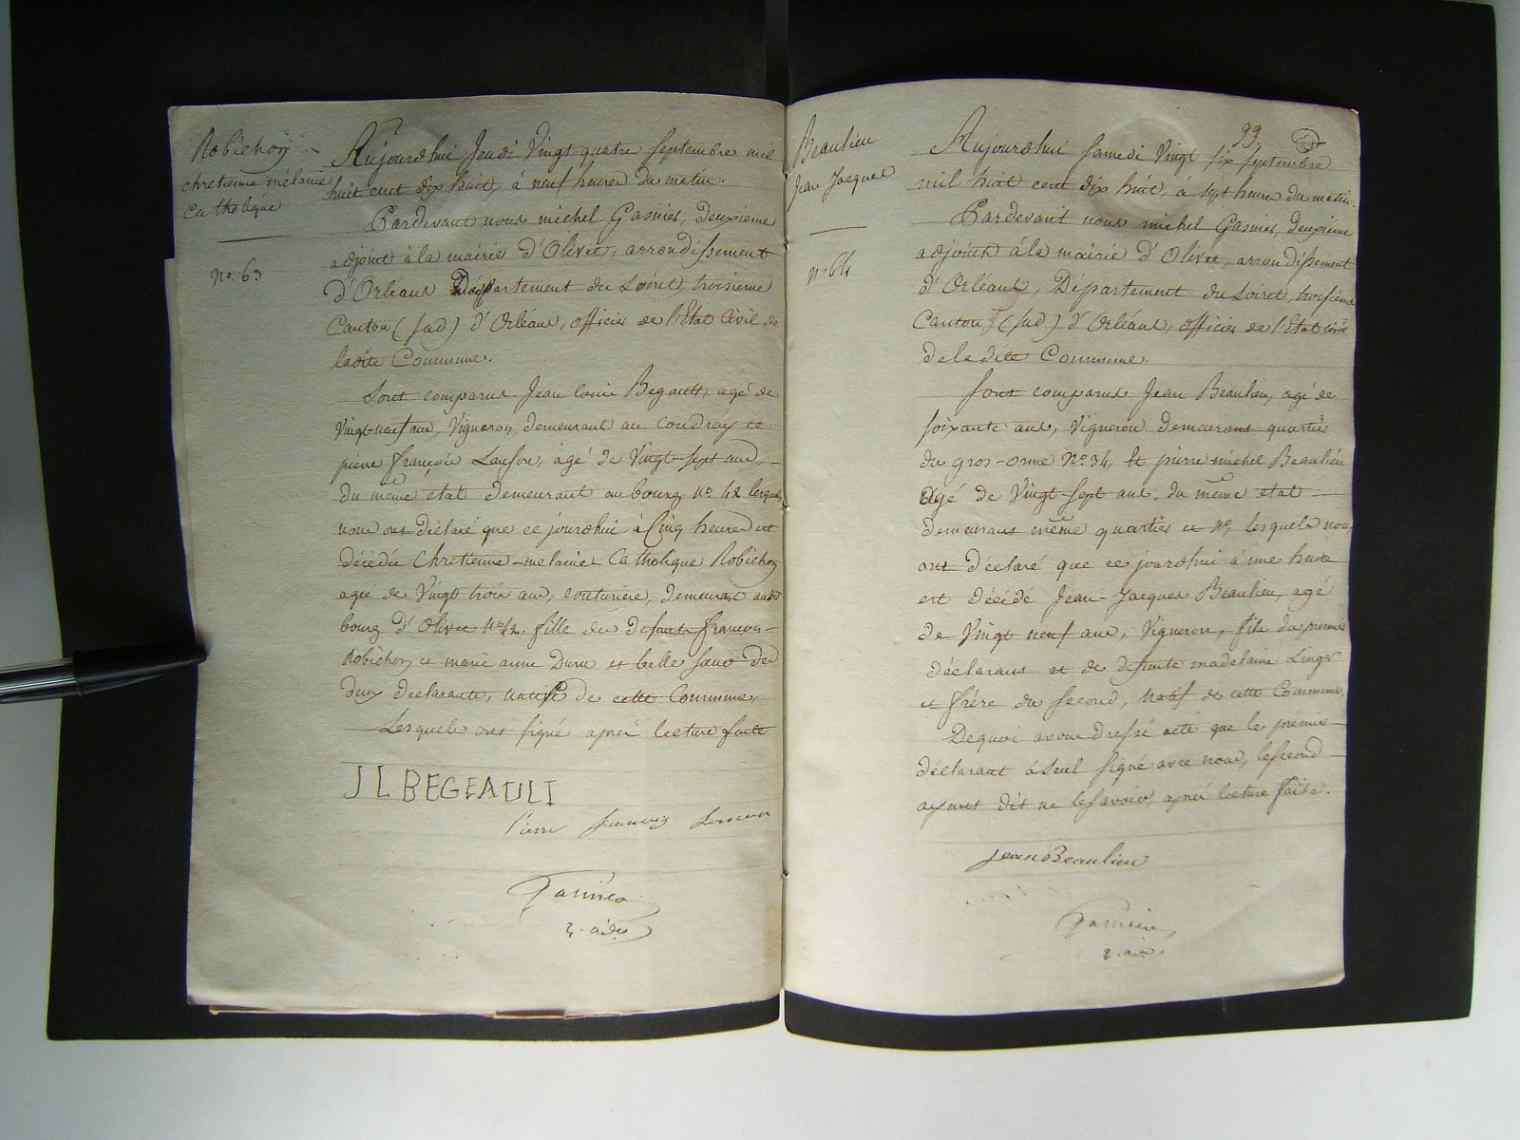 Robichon
chretienne mélaine
Catholique
No. 63
Aujourdhui Jeudi Vingt quatre Septembre mil
huit cent dix huit, à neuf heures du matin.
Pardevant nous michel Gasnier, Deuxieme
adjoint à la mairie d'Olivet, arrondissement
d'Orléans Département du Loiret, troisieme
Canton (Sud) d'Orléans, officier de l'Etat Civil de
ladite Commune.
Sont comparus Jean louis Begault, agé de
Vingt neuf ans, Vigneron, demeurant au Coudray et
pierre françois, agé de Vingt-sept ans,
du même etat demeurant au bourg No. 42 lesquels
nous ont déclaré que ce jourdhui à Cinq heures est
décédée Chretienne-melaine Catholique Robichon
agée de Vingt trois ans, couturiere, demeurant audit
bourg d'Olivet No. 42, fille de defunts françois
Robichon, et marie anne Duru et belle sœur des
dux declarants, native de cette Commune,
Lesquels ont signé après lecture faite
J L BEGEAULT
Pierre francois
Gasnier
2. adj
Beaulieu
Jean Jacques
no. 64
99,
Aujourdhui Samedi Vingt six Septembre
mil huit cent dix huit, à sept heures du matin.
Pardevant nous michel Gasnier, Deuxieme
adjoint à la mairie d'Olivet, arrondissement
d'Orléans, Département du Loiret, troisieme
Canton (Sud) d'Orléans, officier de l'Etat civil
de ladite Commune.
Sont comparus Jean Beaulieu, agé de
soixante ans, Vigneron demeurant quartier
du gros-orme No. 34, Et pierre michel Beaulieu
agé de Vingt sept ans, du même etat
demeurans même quartier et no, lesquels nous
ont déclaré que ce jourdhui à une heure
est décédé Jean-Jacques Beaulieu, agé
de Vingt neuf ans, Vigneron, fils du premier
déclarant et de defunte madelaine
et frère du second, natif de cette Commune,
Dequoi avons dressé acte que le premier
déclarant à seul signé avec nous, le second
ayant dit ne le savoir, après lecture faite.
jean Beaulieu
Gasnier
2. adj